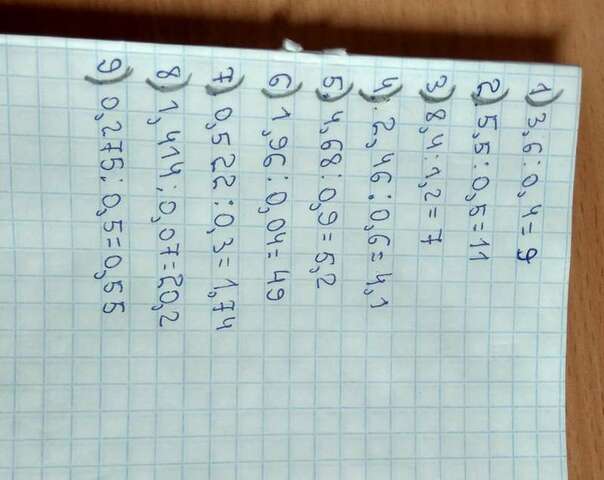 1) 3,6:0,4=9
2) 5,5:0,5=11
3) 8,4:1,2=7
4) 2,46:0,6=4,1
5) 4,68:0,9=5,2
6) 1,96:0,04=49
7) 0,522:0,3=1,74
8) 1,414:0,07=20,2
9) 0,275:0,5=0,55